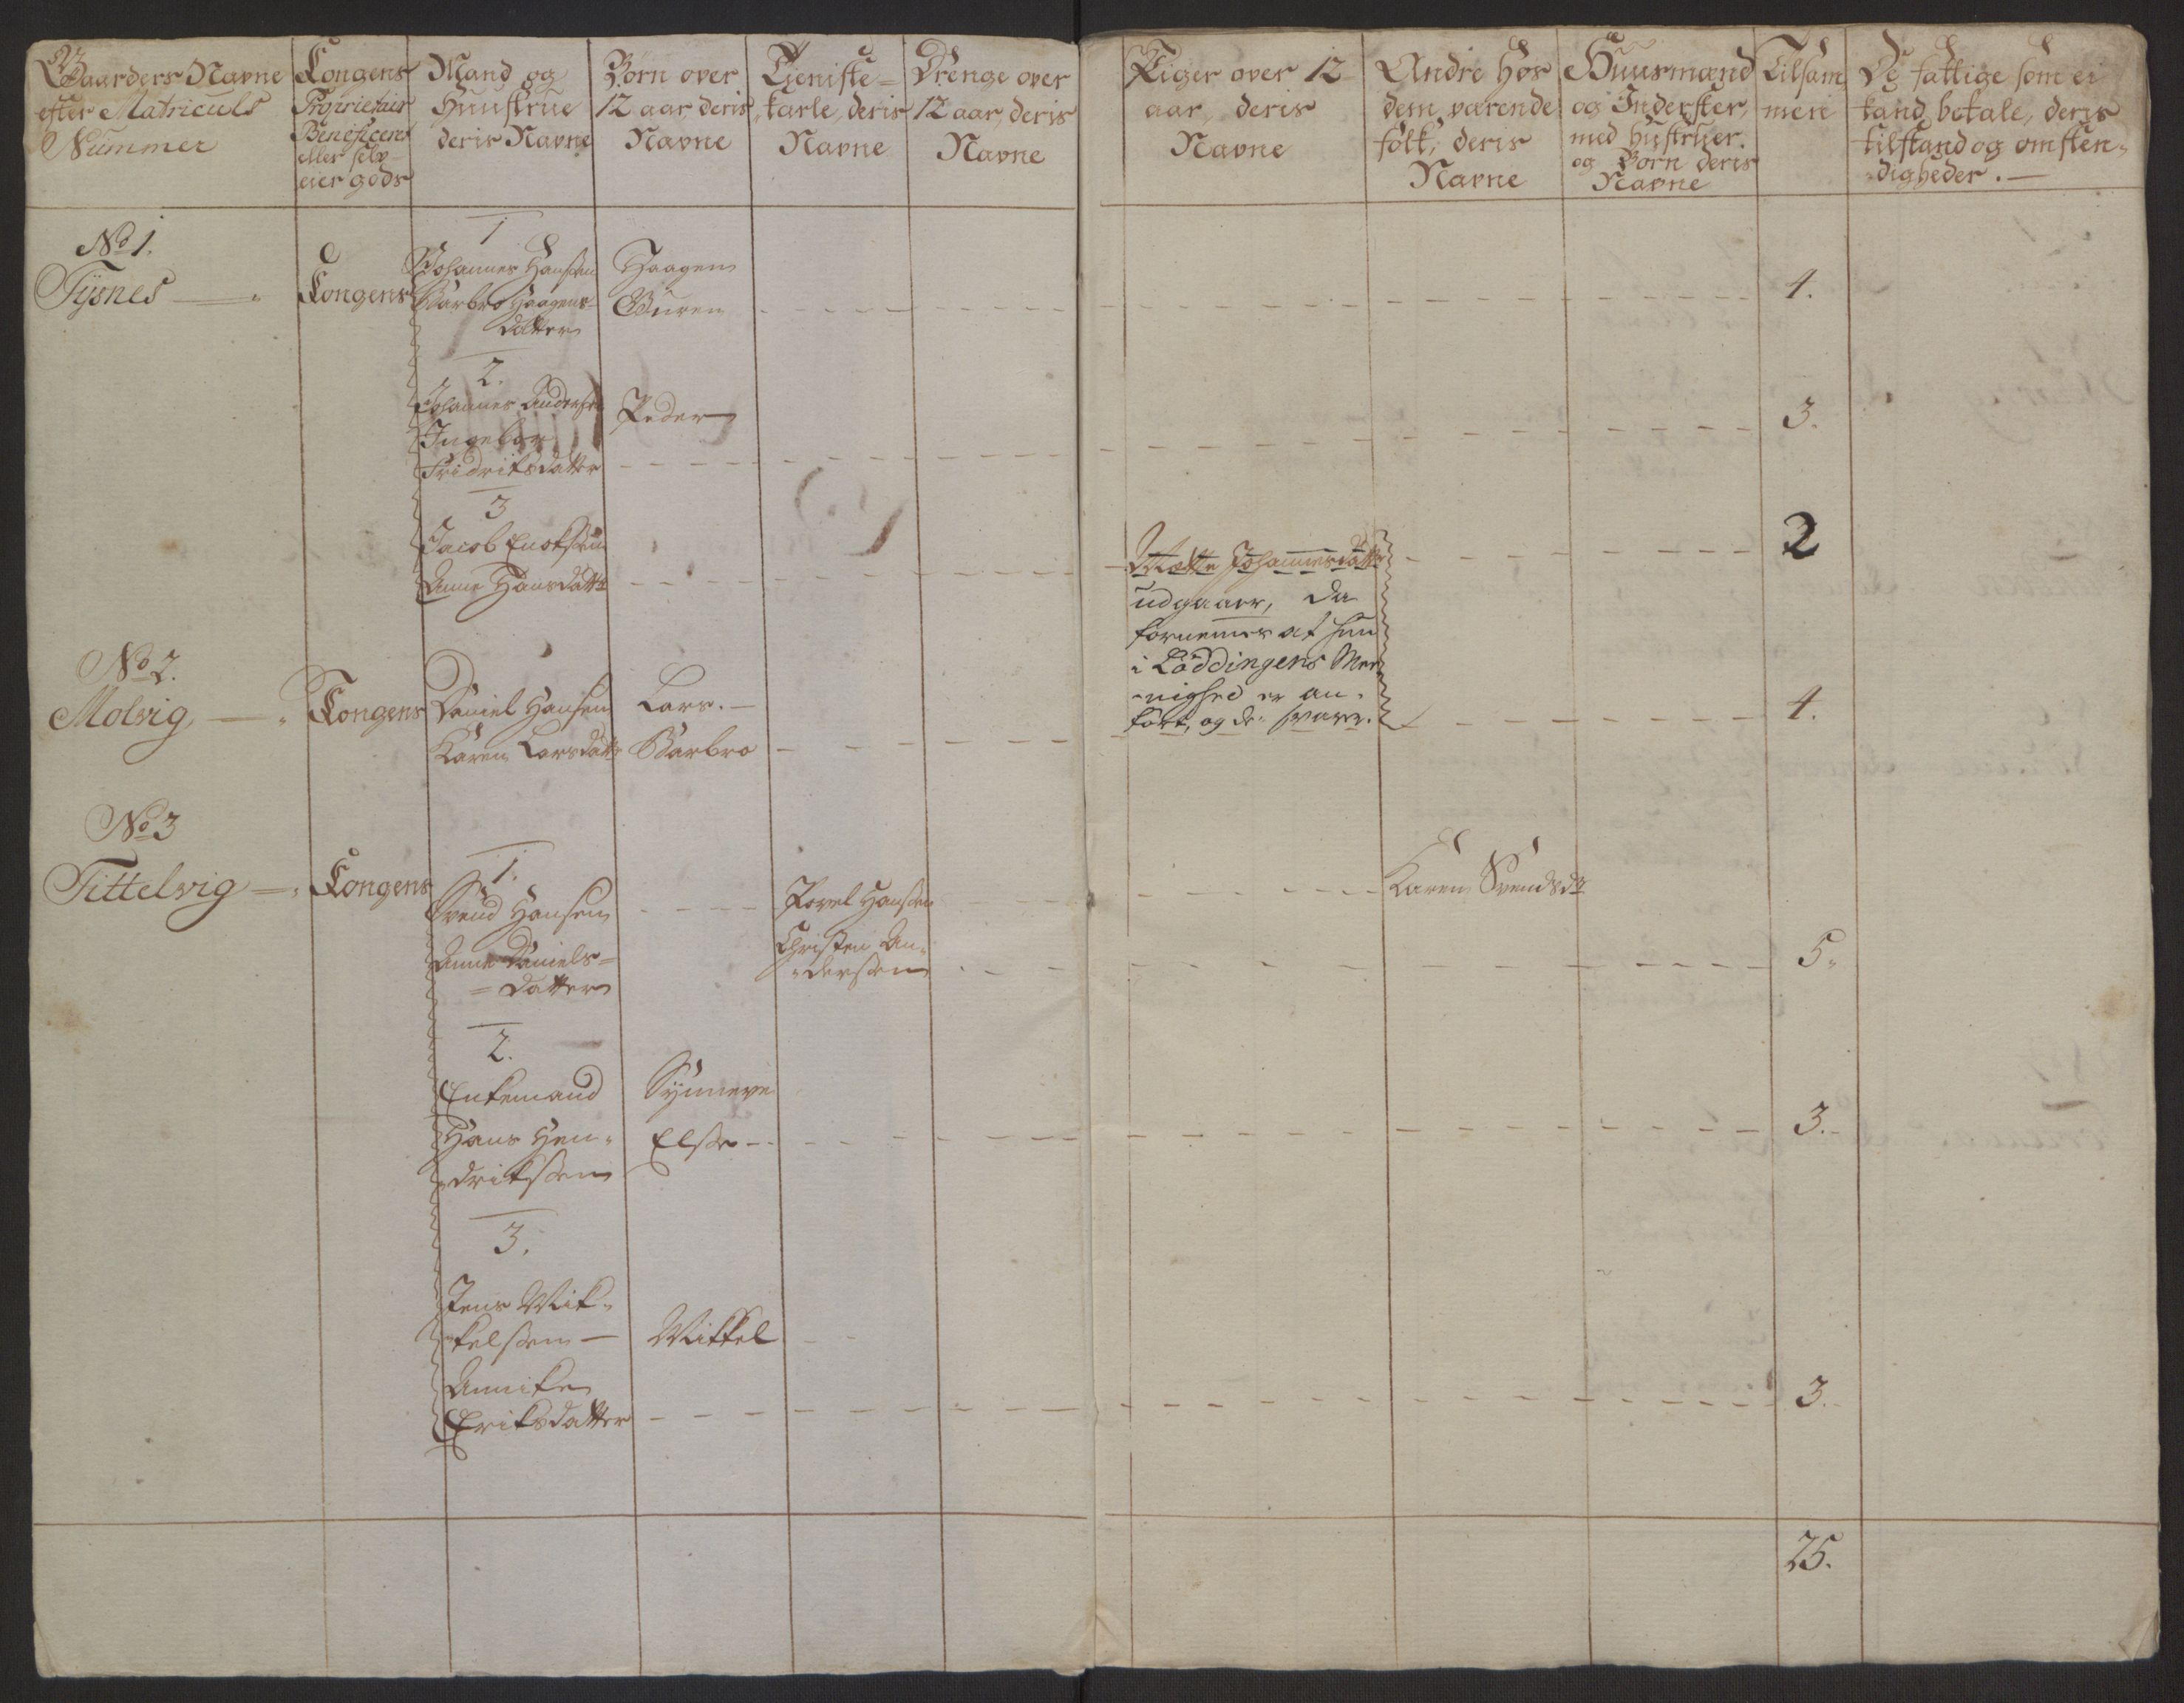 Gaarders Navne
efter Matriculs
Nummer
Kongens
Proprietair
Beneficeret
eller selv-
eier gods
Mand og
Huustrue
deris Navne
Børn over
12 aar deris
Navne
Tieniste-
karle, deris
Navne
Drenge over
12 aar, deris
Navne
Piger over 12
aar, deris
Navne
Andre hos
dem værende
folk, deris
Navne
Huusmænd
og Inderster,
med hustruer.
og Børn deris
Navne
Tilsam
men
De fattige som ei
kand betale, deris
tilstand og omsten-
digheder. —
No 1.
Tysnes — Kongens
1
Johannes Hansen
Barbro Haagens-
datter
Haagen
Guren
4.
2.
Johannes Andersen
Ingebor
Fridriksdatter
Peder
3.
3
Jacob Enoksen
Anne Hansdatter
Mette Johannesdatter
udgaaer, da
fornemes at hun
i Löddingens Me-
nighed er an-
fört, og der svarer.
2
No 2.
Molvig — Kongens
Daniel Hansen
Karen Larsdatter
Lars. —
Barbro
4.
No 3
Tittelvig — Kongens
1.
Svend Hansen
Anne Daniels-
datter
Povel Hansen
Christen An-
dersen
Karen Svendsdr
5.
2.
Enkemand
Hans Hen-
driksen
Synneve
Else —
3.
3.
Jens Mik-
kelsen —
Annike
Eriksdatter
Mikkel
3.
25.